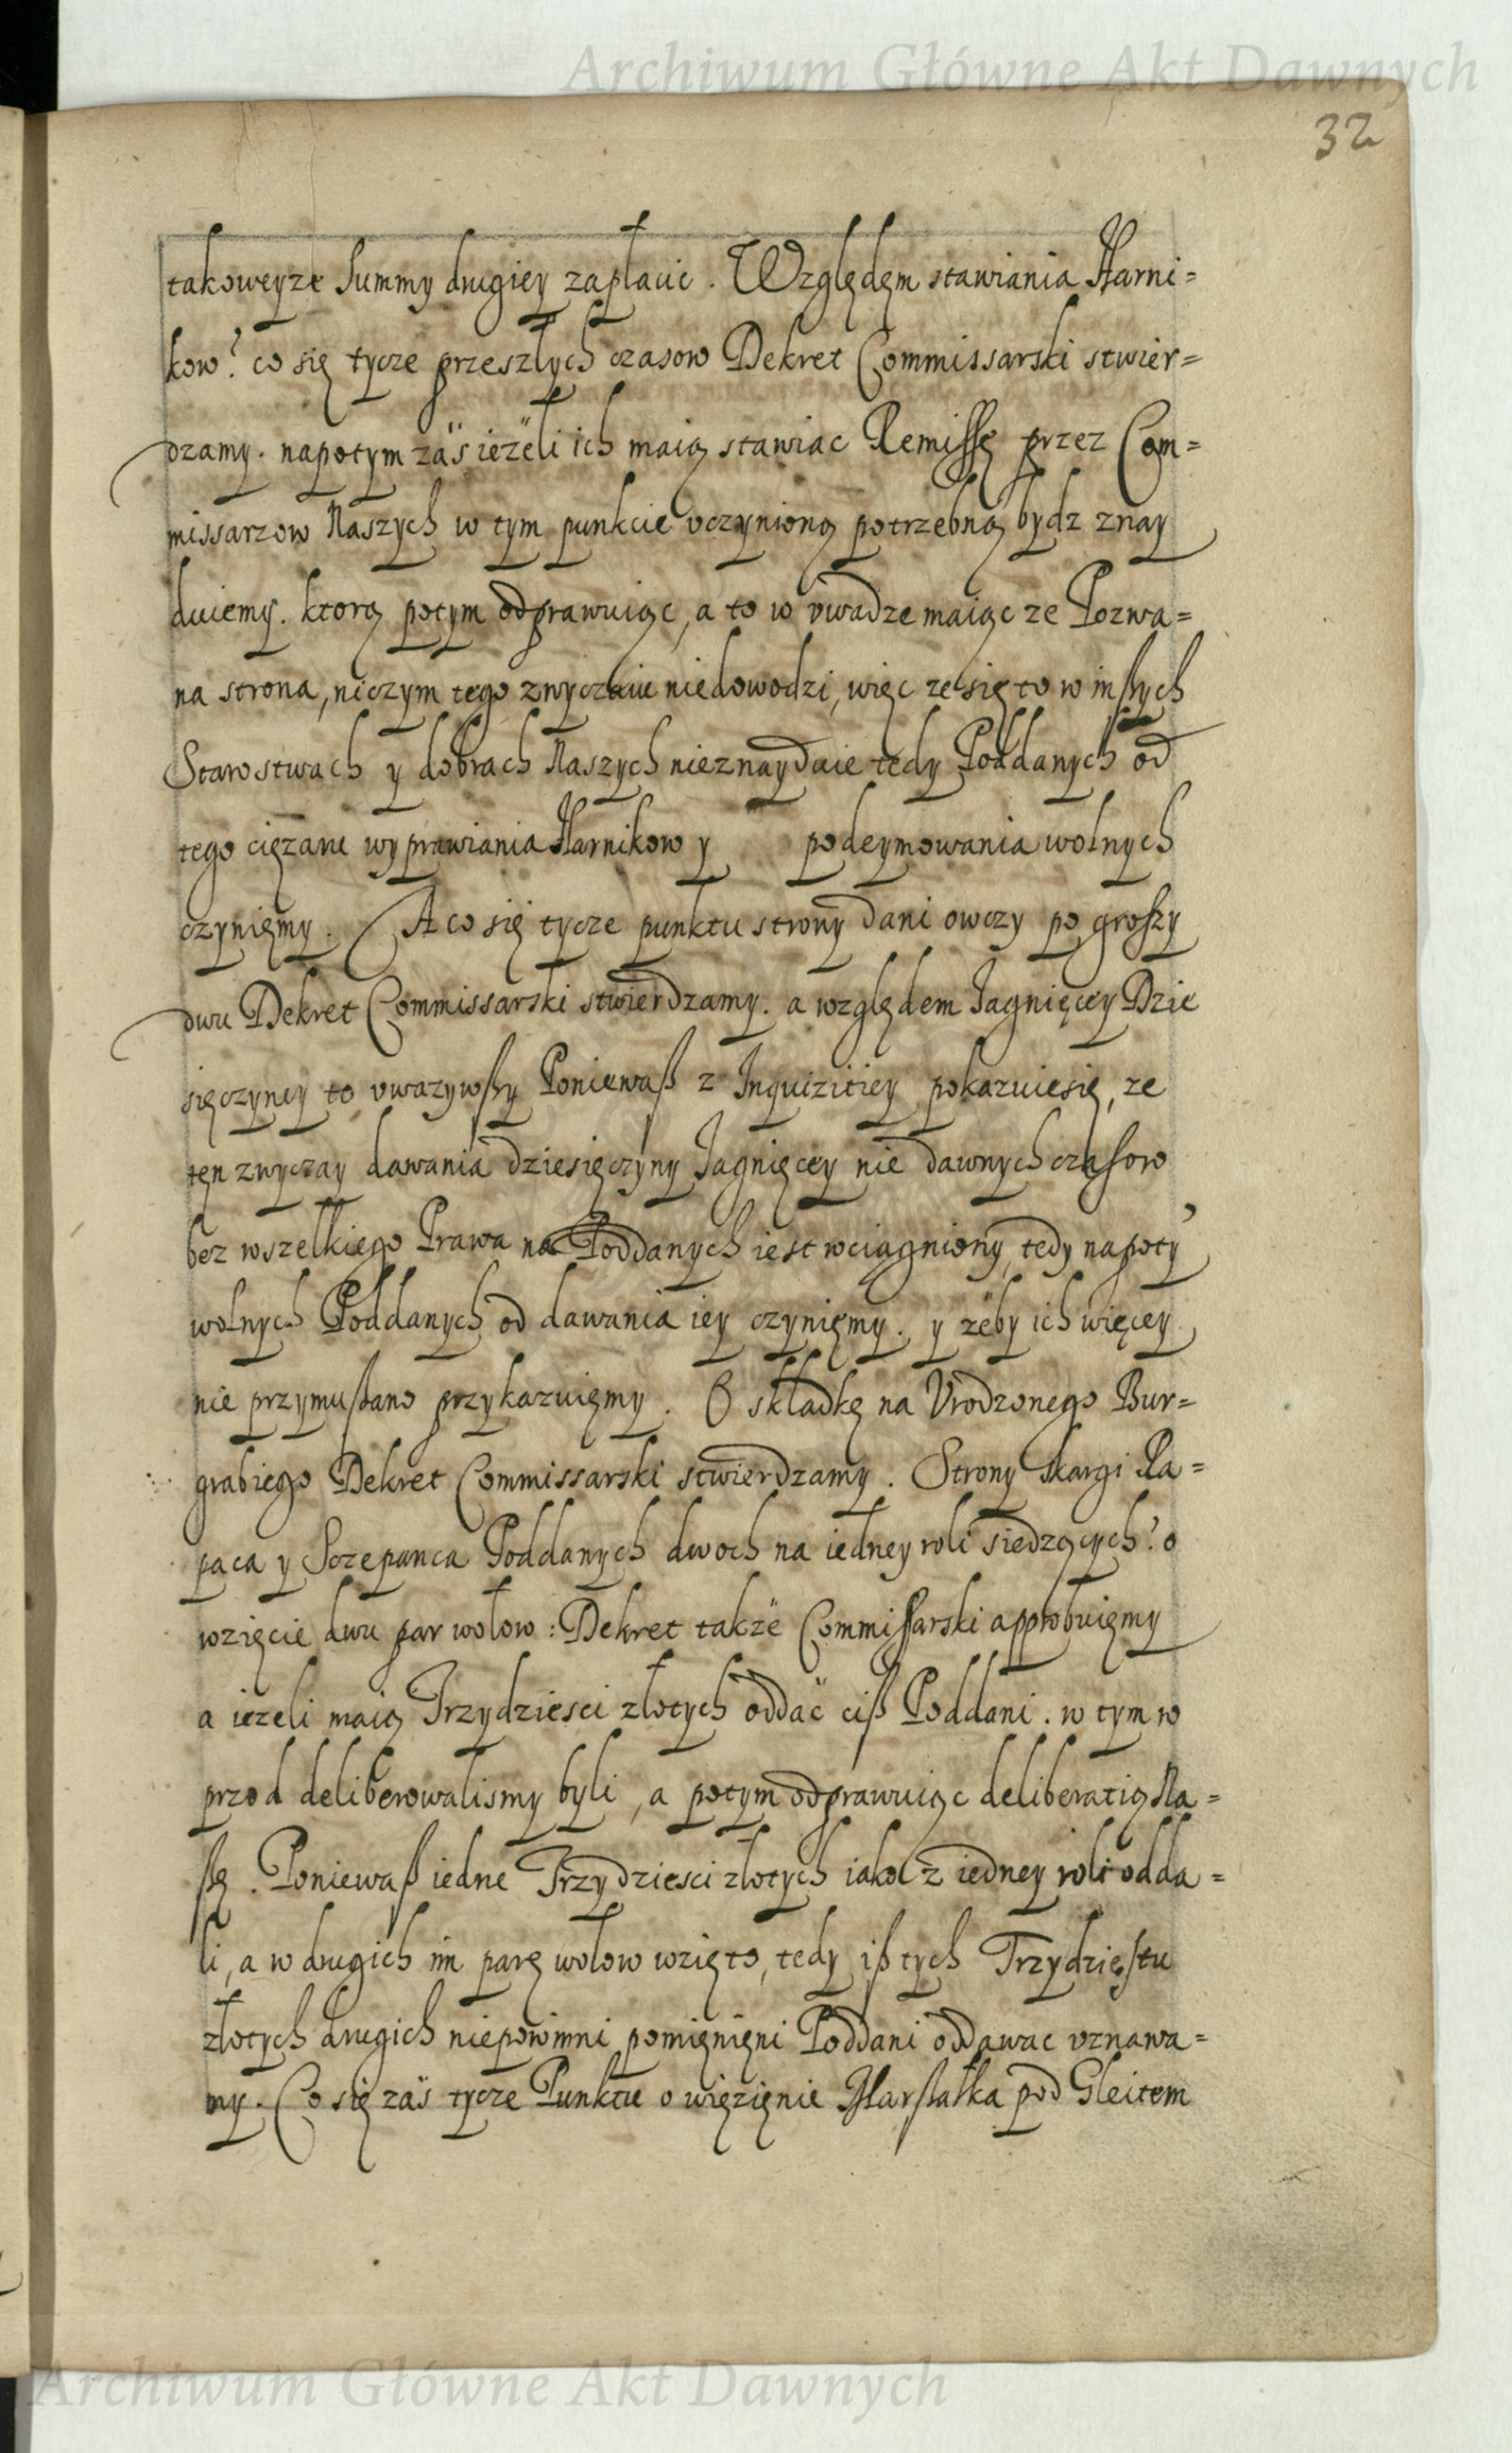 Archiwum Główne Akt Dawnych
32
takoweyze Summy drugiey zapłacic. Względęm stawiania Harni=
kow? co się tycze przeszłych czasow Dekret Commissarski stwier=
dzamy. napotym zaś ieżeli ich maią stawiac Remissę przez Com=
missarzow Naszych w tym punkcie vczynioną potrzebną bydz znay
duiemy. ktorą potym odprawuiąc, a to w vwadze maiąc ze Pozwa=
na strona, niczym tego zwyczaiu niedowodzi, więc ze się to w inßych
Starostwach y dobrach Naszych nieznayduie tedy Poddanych od
tego ciężaru wyprawiania Harnikow y podeymowania wolnych
czynięmy. A co się tycze punktu strony dani owczy po groszy
dwu Dekret Commissarski stwierdzamy. a względem Jagnięcey Dzie
sięczyney to vwazywßy Poniewaß z Inquizitiey pokazuiesię, ze
tęn zwyczay dawania dziesięczyny Jagnięcey nie dawnych czasow
bez wszelkiego Prawa na Poddanych iest wciągniony, tedy napoty
wolnych Poddanych od dawania iey czynięmy. y żeby ich więcey
nie przymußano przykazuięmy. O składkę na Vrodzonego Bur=
grabiego Dekret Commissarski stwierdzamy. Strony skargi Ra=
paca y Sczepanca Poddanych dwoch na iedney roli siedzących? o
wzięcie dwu par wołow: Dekret także Commissarski approbuięmy
a iezeli maią Trzydziesci złotych oddać ciß Poddani. w tym w
przod deliberowalismy byli, a potym odprawuiąc deliberatią Na=
ßę. Poniewaß iedne Trzydziesci złotych iako z iedney roli odda=
li, a w drugich im parę wołow wzięto, tedy iß tych Trzydzięstu
złotych drugich niepowinni pomięnięni Poddani oddawac vznawa=
my. Co się zaś tycze Punktu o więzięnie Marßałka pod Gleitem
Archiwum Główne Akt Dawnych